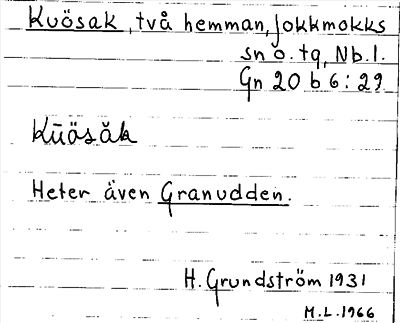 Kuösak, två hemman, Jokkmokks
sn o. tg, Nb.l.
Gn 20 b 6:29
Kūösăk
Heter även Granudden.
H. Grundström 1931
M.L.1966